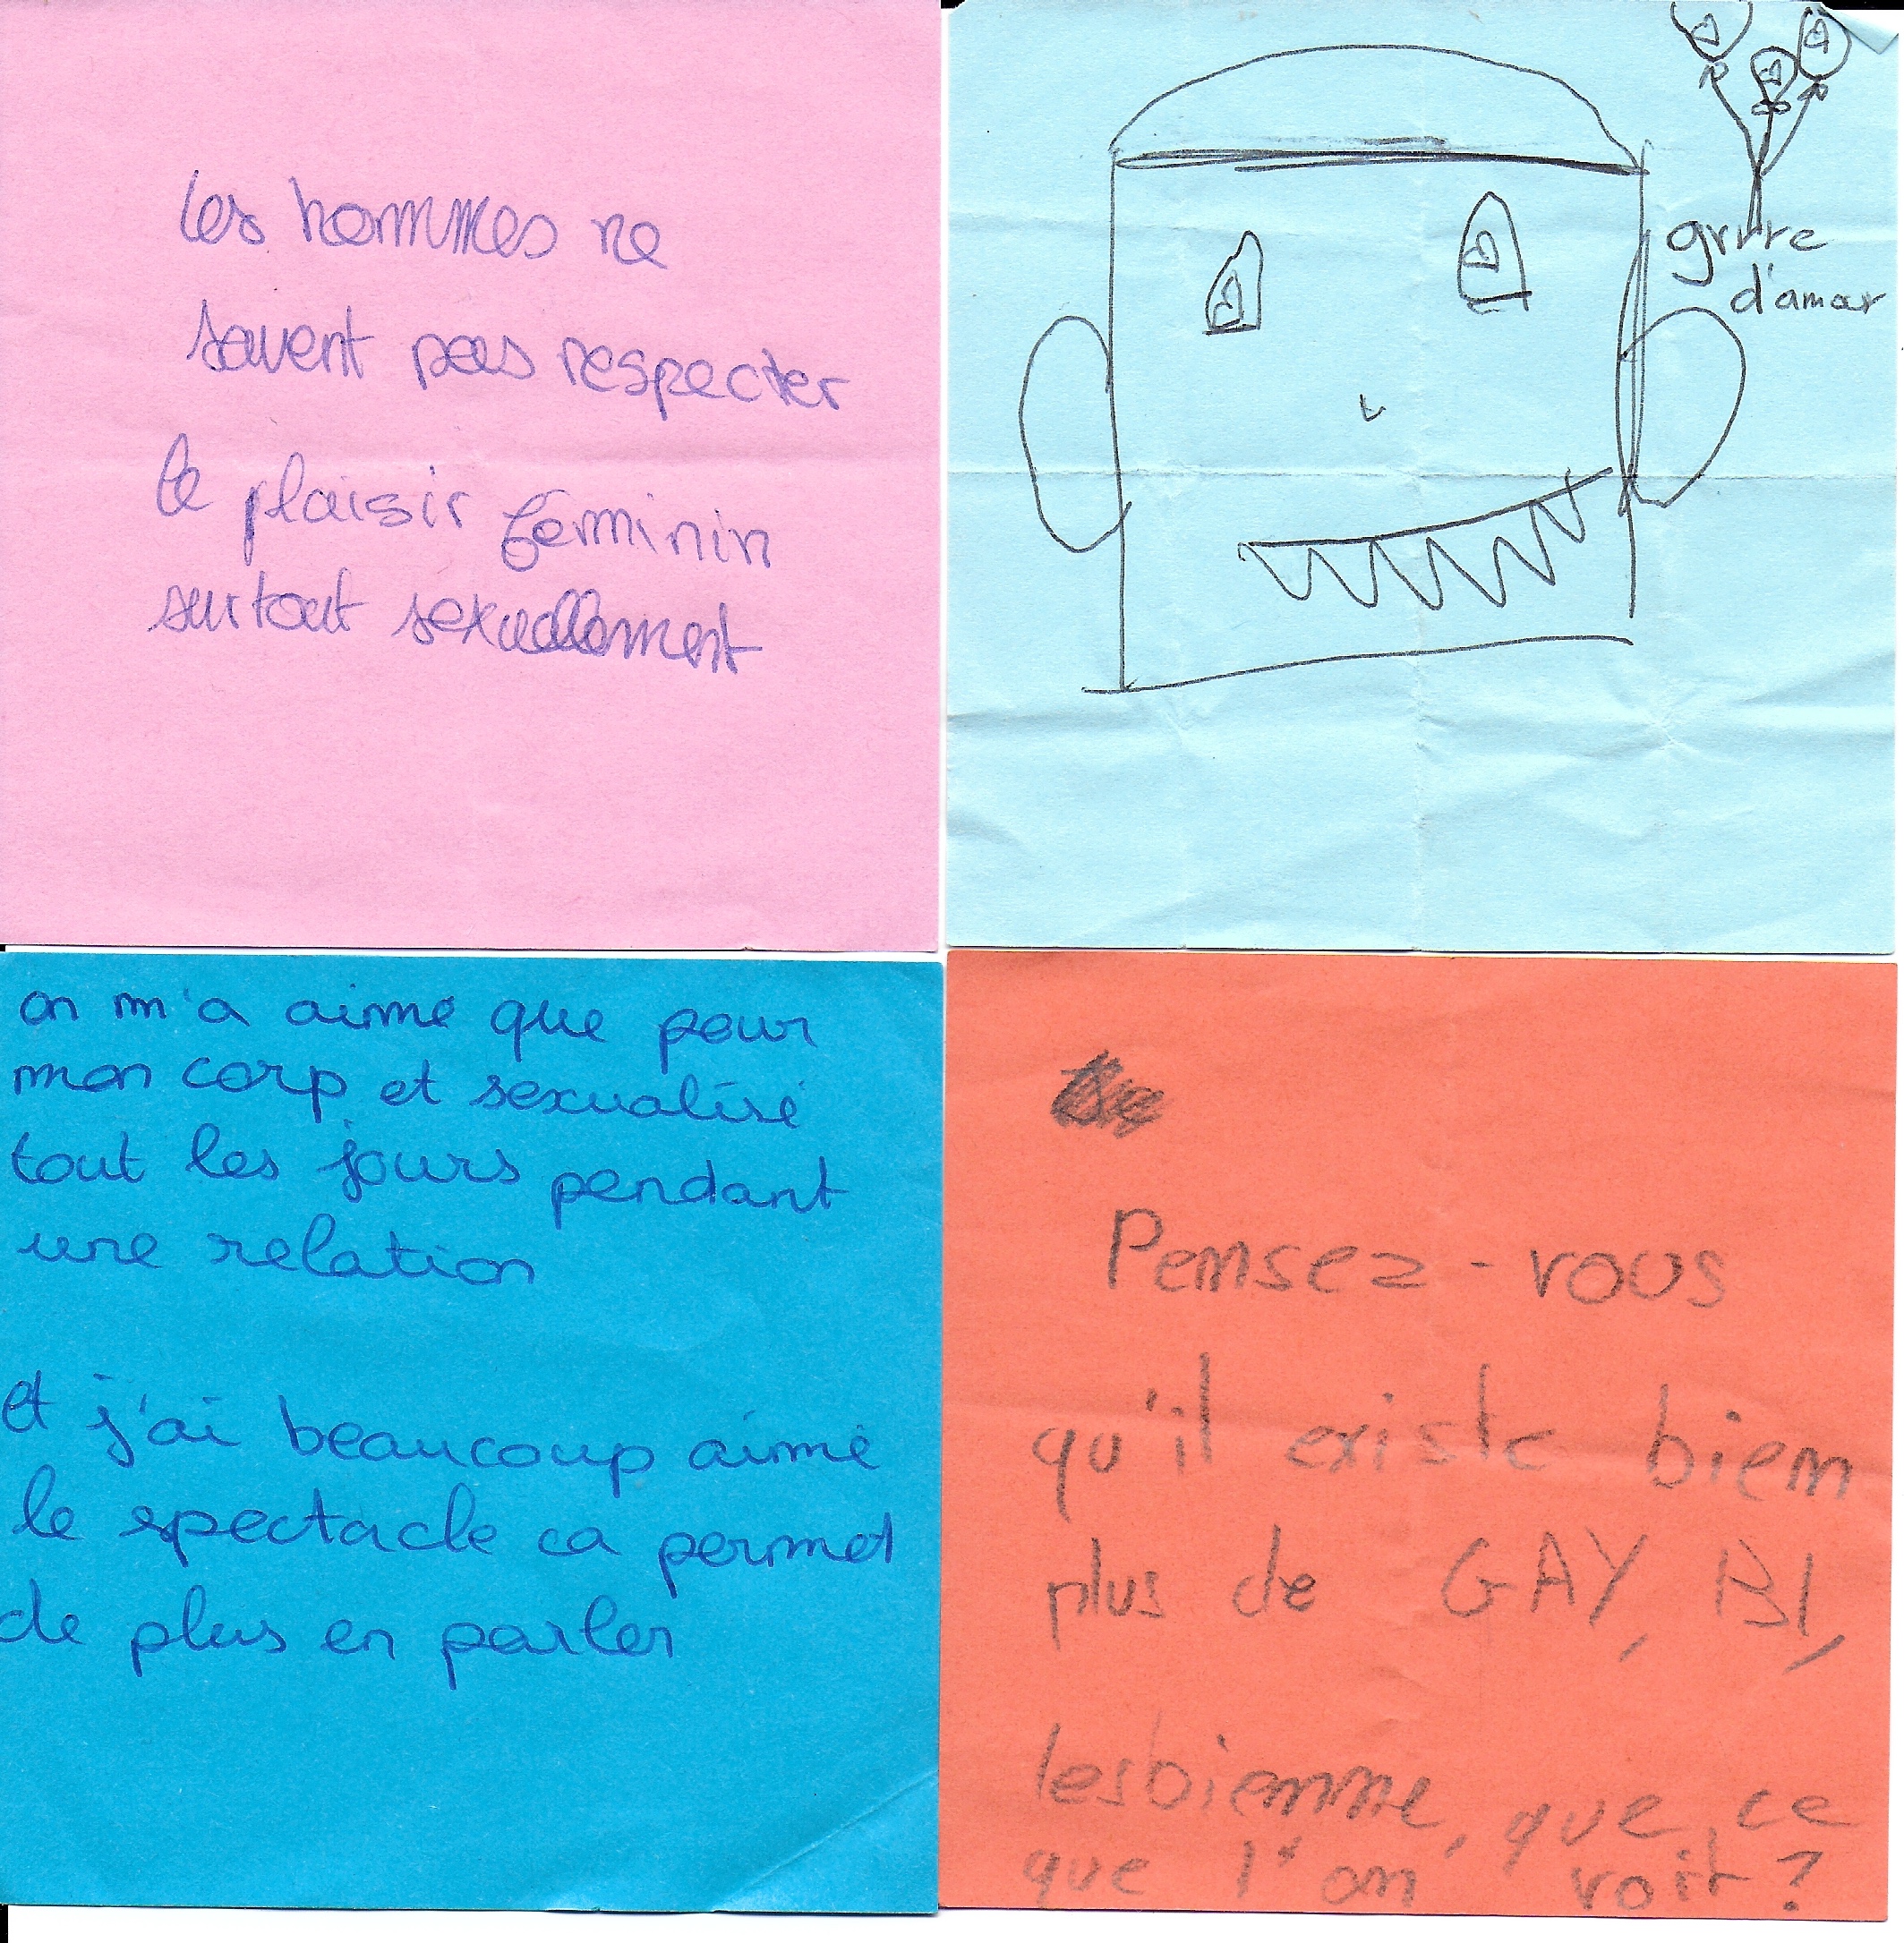 les hommes ne
savent pas respecter
le plaisir féminin
surtout sexuellement
d'amour
on m'a aimé que pour
mon corp et sexualisé
tout les jours pendant
une relation
et j'ai beaucoup aimé
le spectacle ca permet
de plus en parler
Pensez-vous
qu'il existe bien
plus de GAY, BI,
lesbienne, que ce
que l'on voit ?